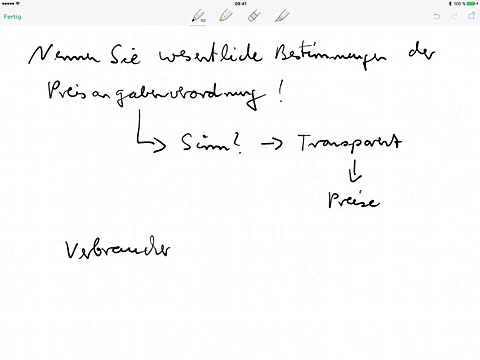 Fertig
09:41
100 %
Nennen Sie wesentliche Bestimmungen der
Preisangabenverordnung!
Sinn? → Transparent
Preise
Verbraucher